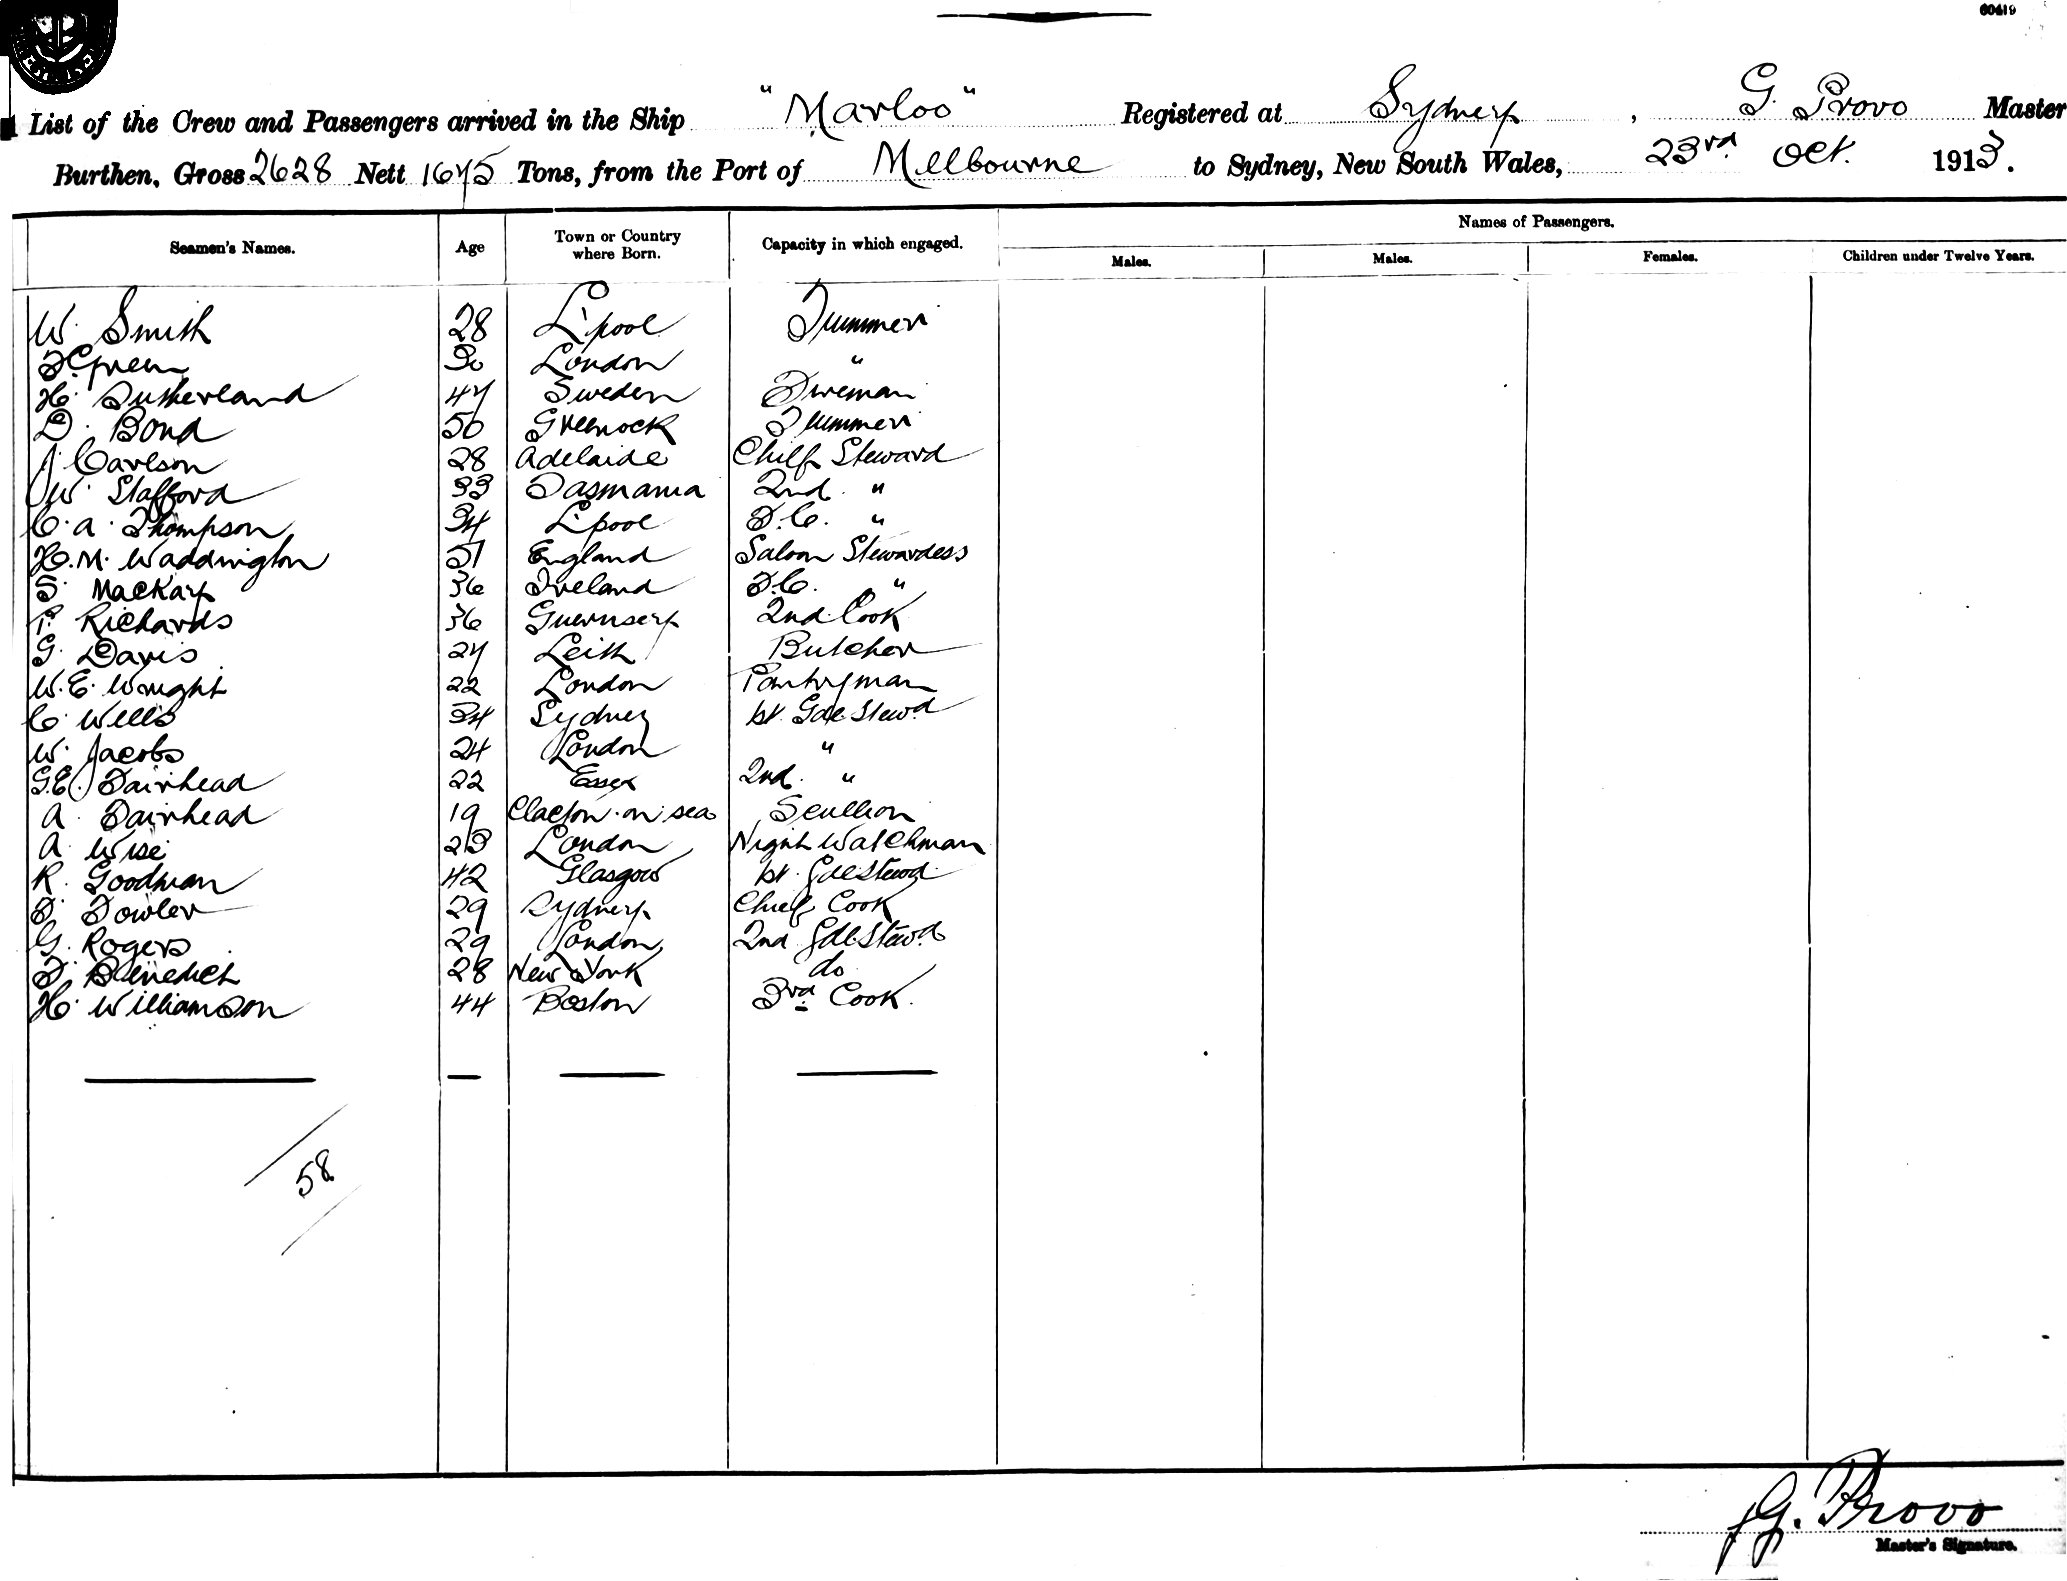 60419
List of the Crew and Passengers arrived in the Ship "Marloo" Registered at Sydney, G. Provo Master
Burthen, Gross 2628 Nett 1675 Tons, from the Port of Melbourne to Sydney, New South Wales, 23rd Oct. 1913.
Names of Passengers.
Seamen's Names. Age Town or Country where Born. Capacity in which engaged. Males. Males. Females. Children under Twelve Years.
W. Smith 28 L'pool Trimmer
F. Green 30 London "
H. Sutherland 47 Sweden Fireman
D. Bond 50 Greenock Trimmer
J Carlson 28 Adelaide Chief Steward
W. Stafford 33 Tasmania 2nd. "
C. A. Thompson 34 L'pool F.C. "
H. M. Waddington 51 England Saloon Stewardess
S. Mackay 36 Ireland F.C. "
P. Richards 36 Guernsey 2nd Cook
G. Davis 27 Leith Butcher
W. E. Wright 22 London Pantryman
C. Wells 34 Sydney 1st. Gde Stewd
W. Jacobs 24 London "
G.E. Fairhead 22 Essex 2nd. "
A. Fairhead 19 Clacton-on-sea Scullion
A. Wise 23 London Night Watchman
R. Goodman 42 Glasgow 1st. Gde Stewd.
F. Fowler 29 Sydney Chief Cook
G. Rogers 29 London 2nd Gde Stewd.
F. Benedict 28 New York do
H. Williamson 44 Boston 3rd Cook.
58
G. Provo
Master's Signature.